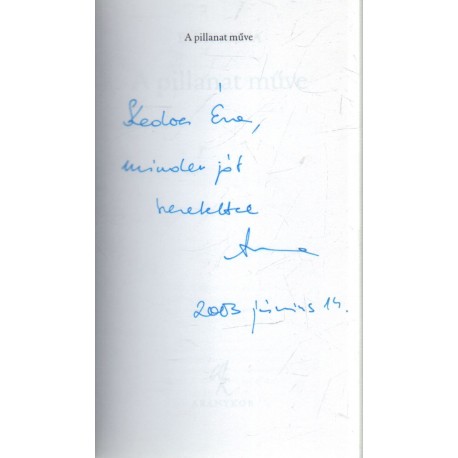 A pillanat műve
A pillanat műve
Kedves Éva,
minden jót
szeretettel
Anna
2003 június 14.
ARANYKOR